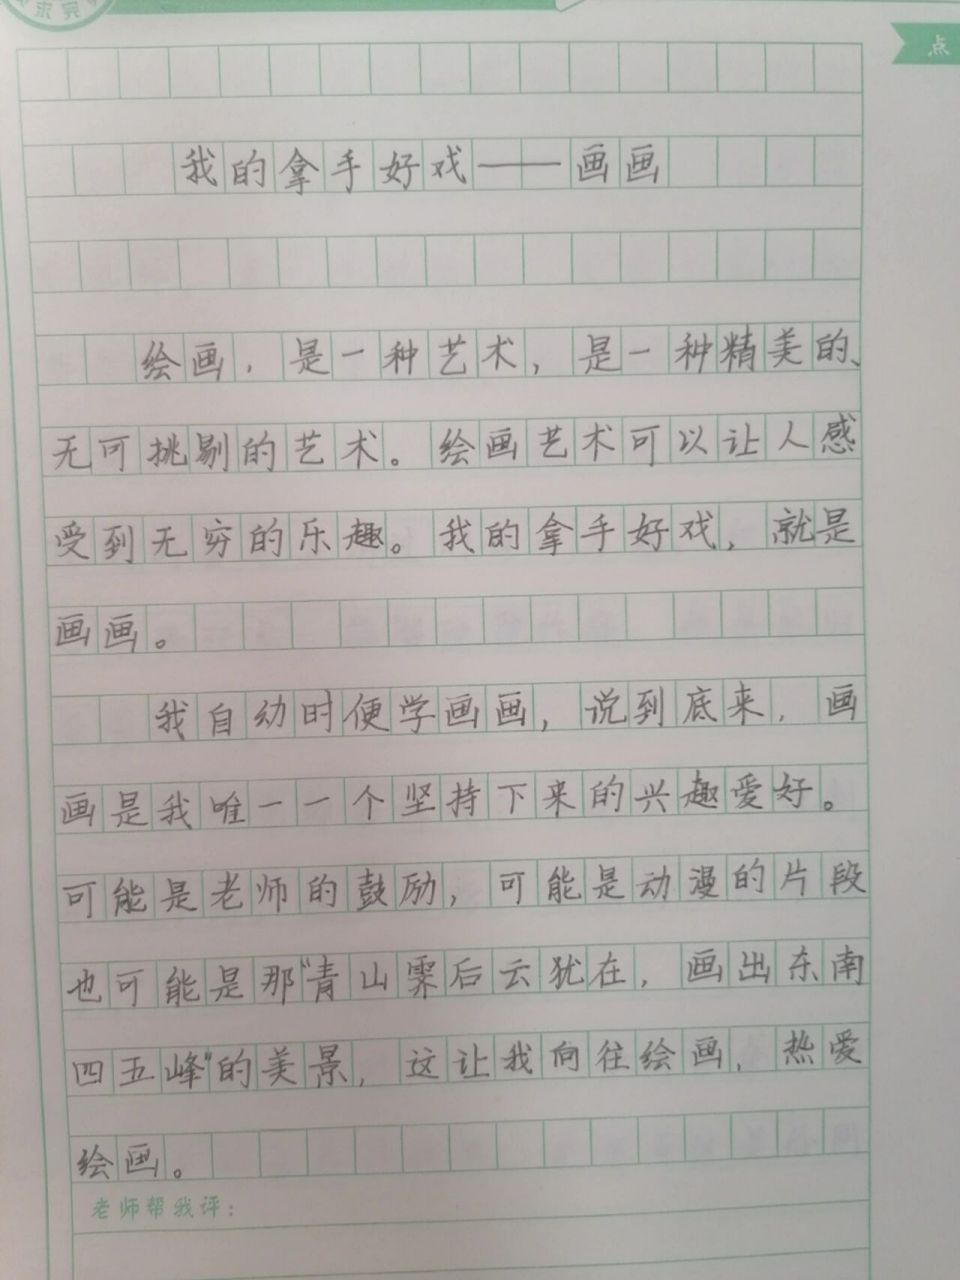 求完
点
我的拿手好戏——画画
绘画，是一种艺术，是一种精美的、
无可挑剔的艺术。绘画艺术可以让人感
受到无穷的乐趣。我的拿手好戏，就是
画画。
我自幼时便学画画，说到底来，画
画是我唯一一个坚持下来的兴趣爱好。
可能是老师的鼓励，可能是动漫的片段
也可能是那“青山霁后云犹在，画出东南
四五峰”的美景，这让我向往绘画，热爱
绘画。
老师帮我评：